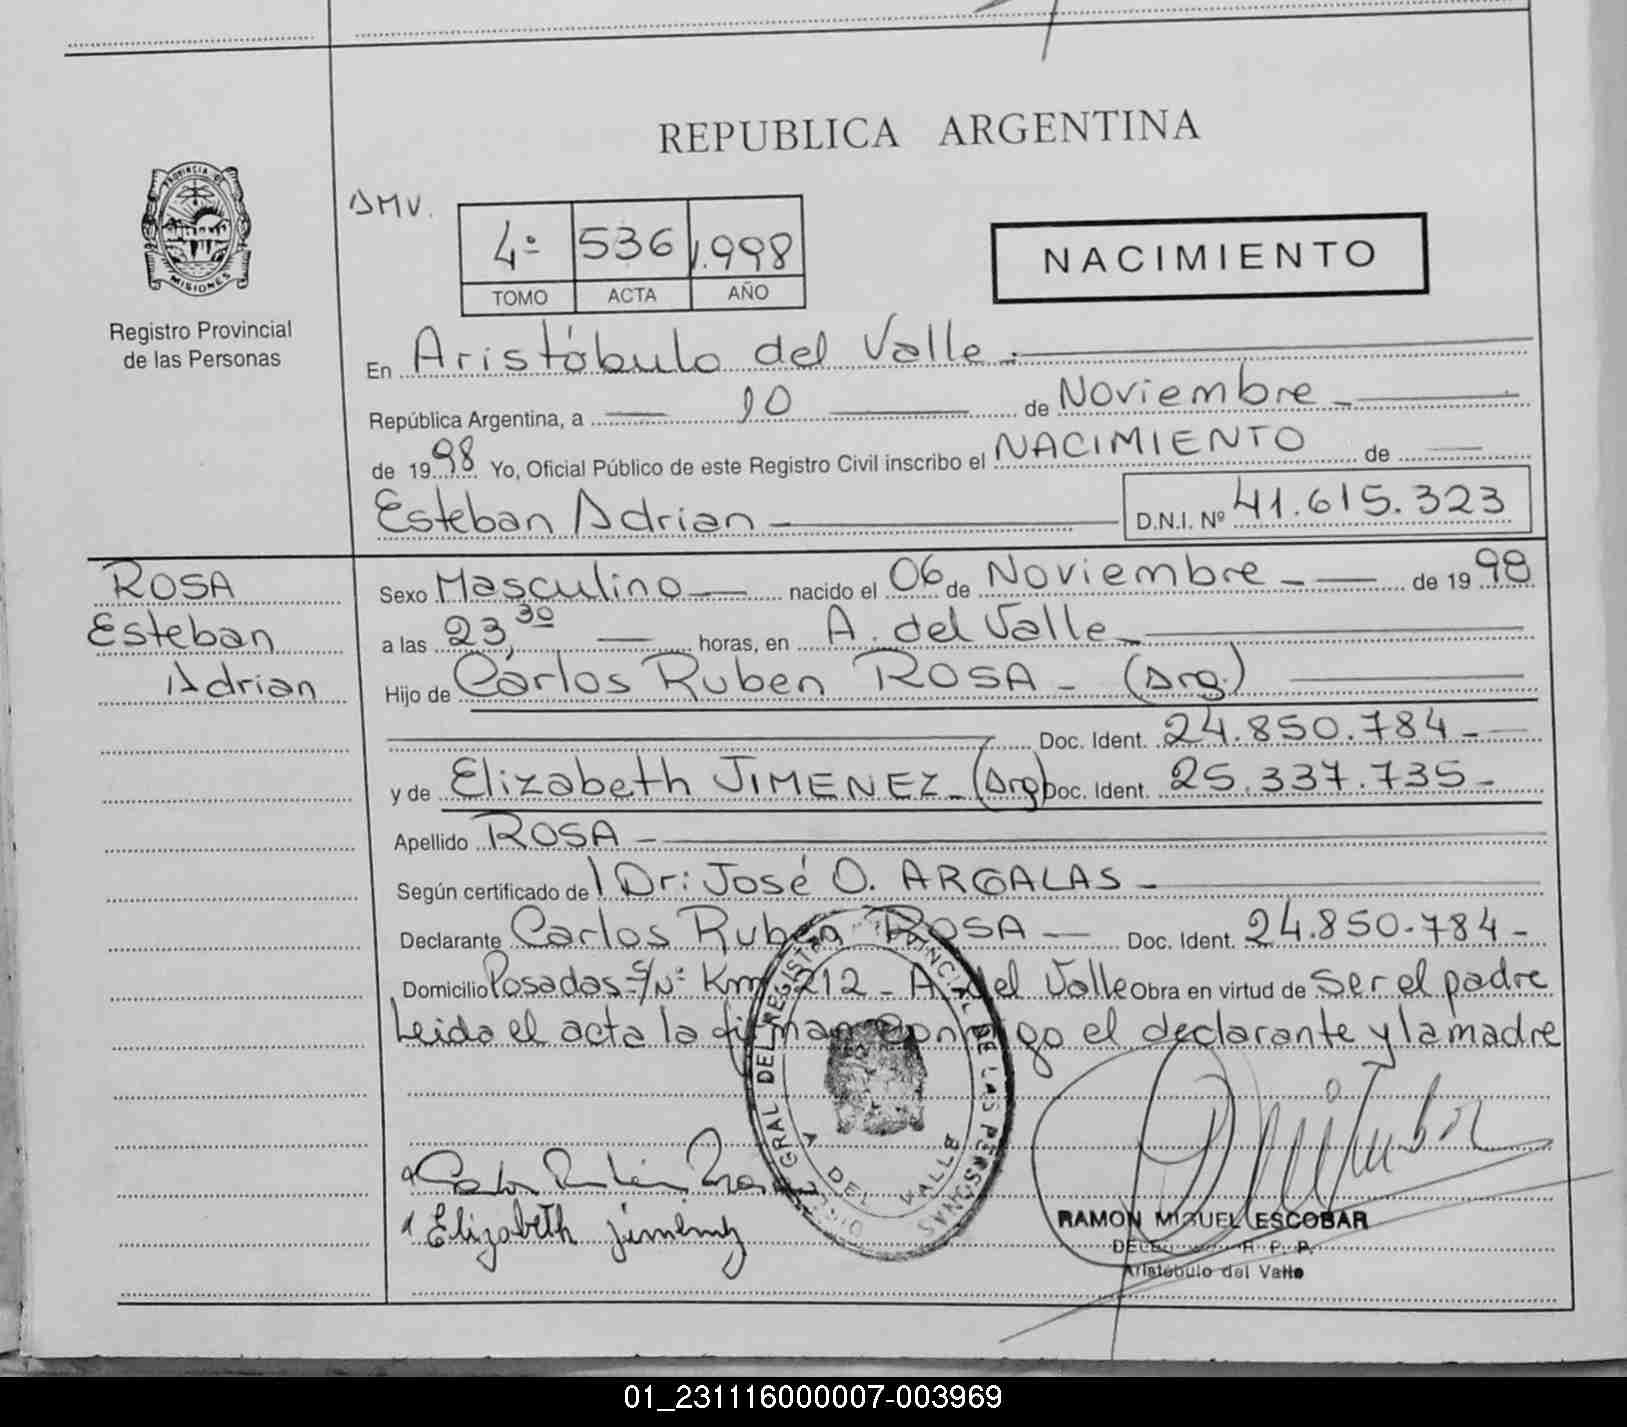 REPUBLICA ARGENTINA
PROVINCIA DE MISIONES
Registro Provincial
de las Personas
DMV.
4º 536 1.998
TOMO ACTA AÑO
NACIMIENTO
En Aristóbulo del Valle -.
República Argentina, a — 10 — de Noviembre -
de 1998 Yo, Oficial Público de este Registro Civil inscribo el NACIMIENTO de —
Esteban Adrian — D.N.I. Nº 41.615.323
ROSA
Esteban
Adrian
Sexo Masculino — nacido el 06 de Noviembre - — de 1998
a las 23,30 — horas, en A. del Valle -
Hijo de Carlos Ruben ROSA - (Arg.)
Doc. Ident. 24.850.784 -
y de Elizabeth JIMENEZ - (Arg) Doc. Ident. 25.337.735 -
Apellido ROSA -
Según certificado del Dr: José O. ARGALAS -
Declarante Carlos Ruben ROSA — Doc. Ident. 24.850.784 -
Domicilio Posadas S/Nº Km 212 - A. del Valle Obra en virtud de ser el padre
Leida el acta la firman conmigo el declarante y la madre
GRAL DEL REGISTRO PROVINCIAL DE LAS PERSONAS
A DEL VALLE
Carlos Rubén Rosa
Elizabeth Jimenez
RAMON MIGUEL ESCOBAR
R. P. P.
Aristobulo del Valle
01_231116000007-003969